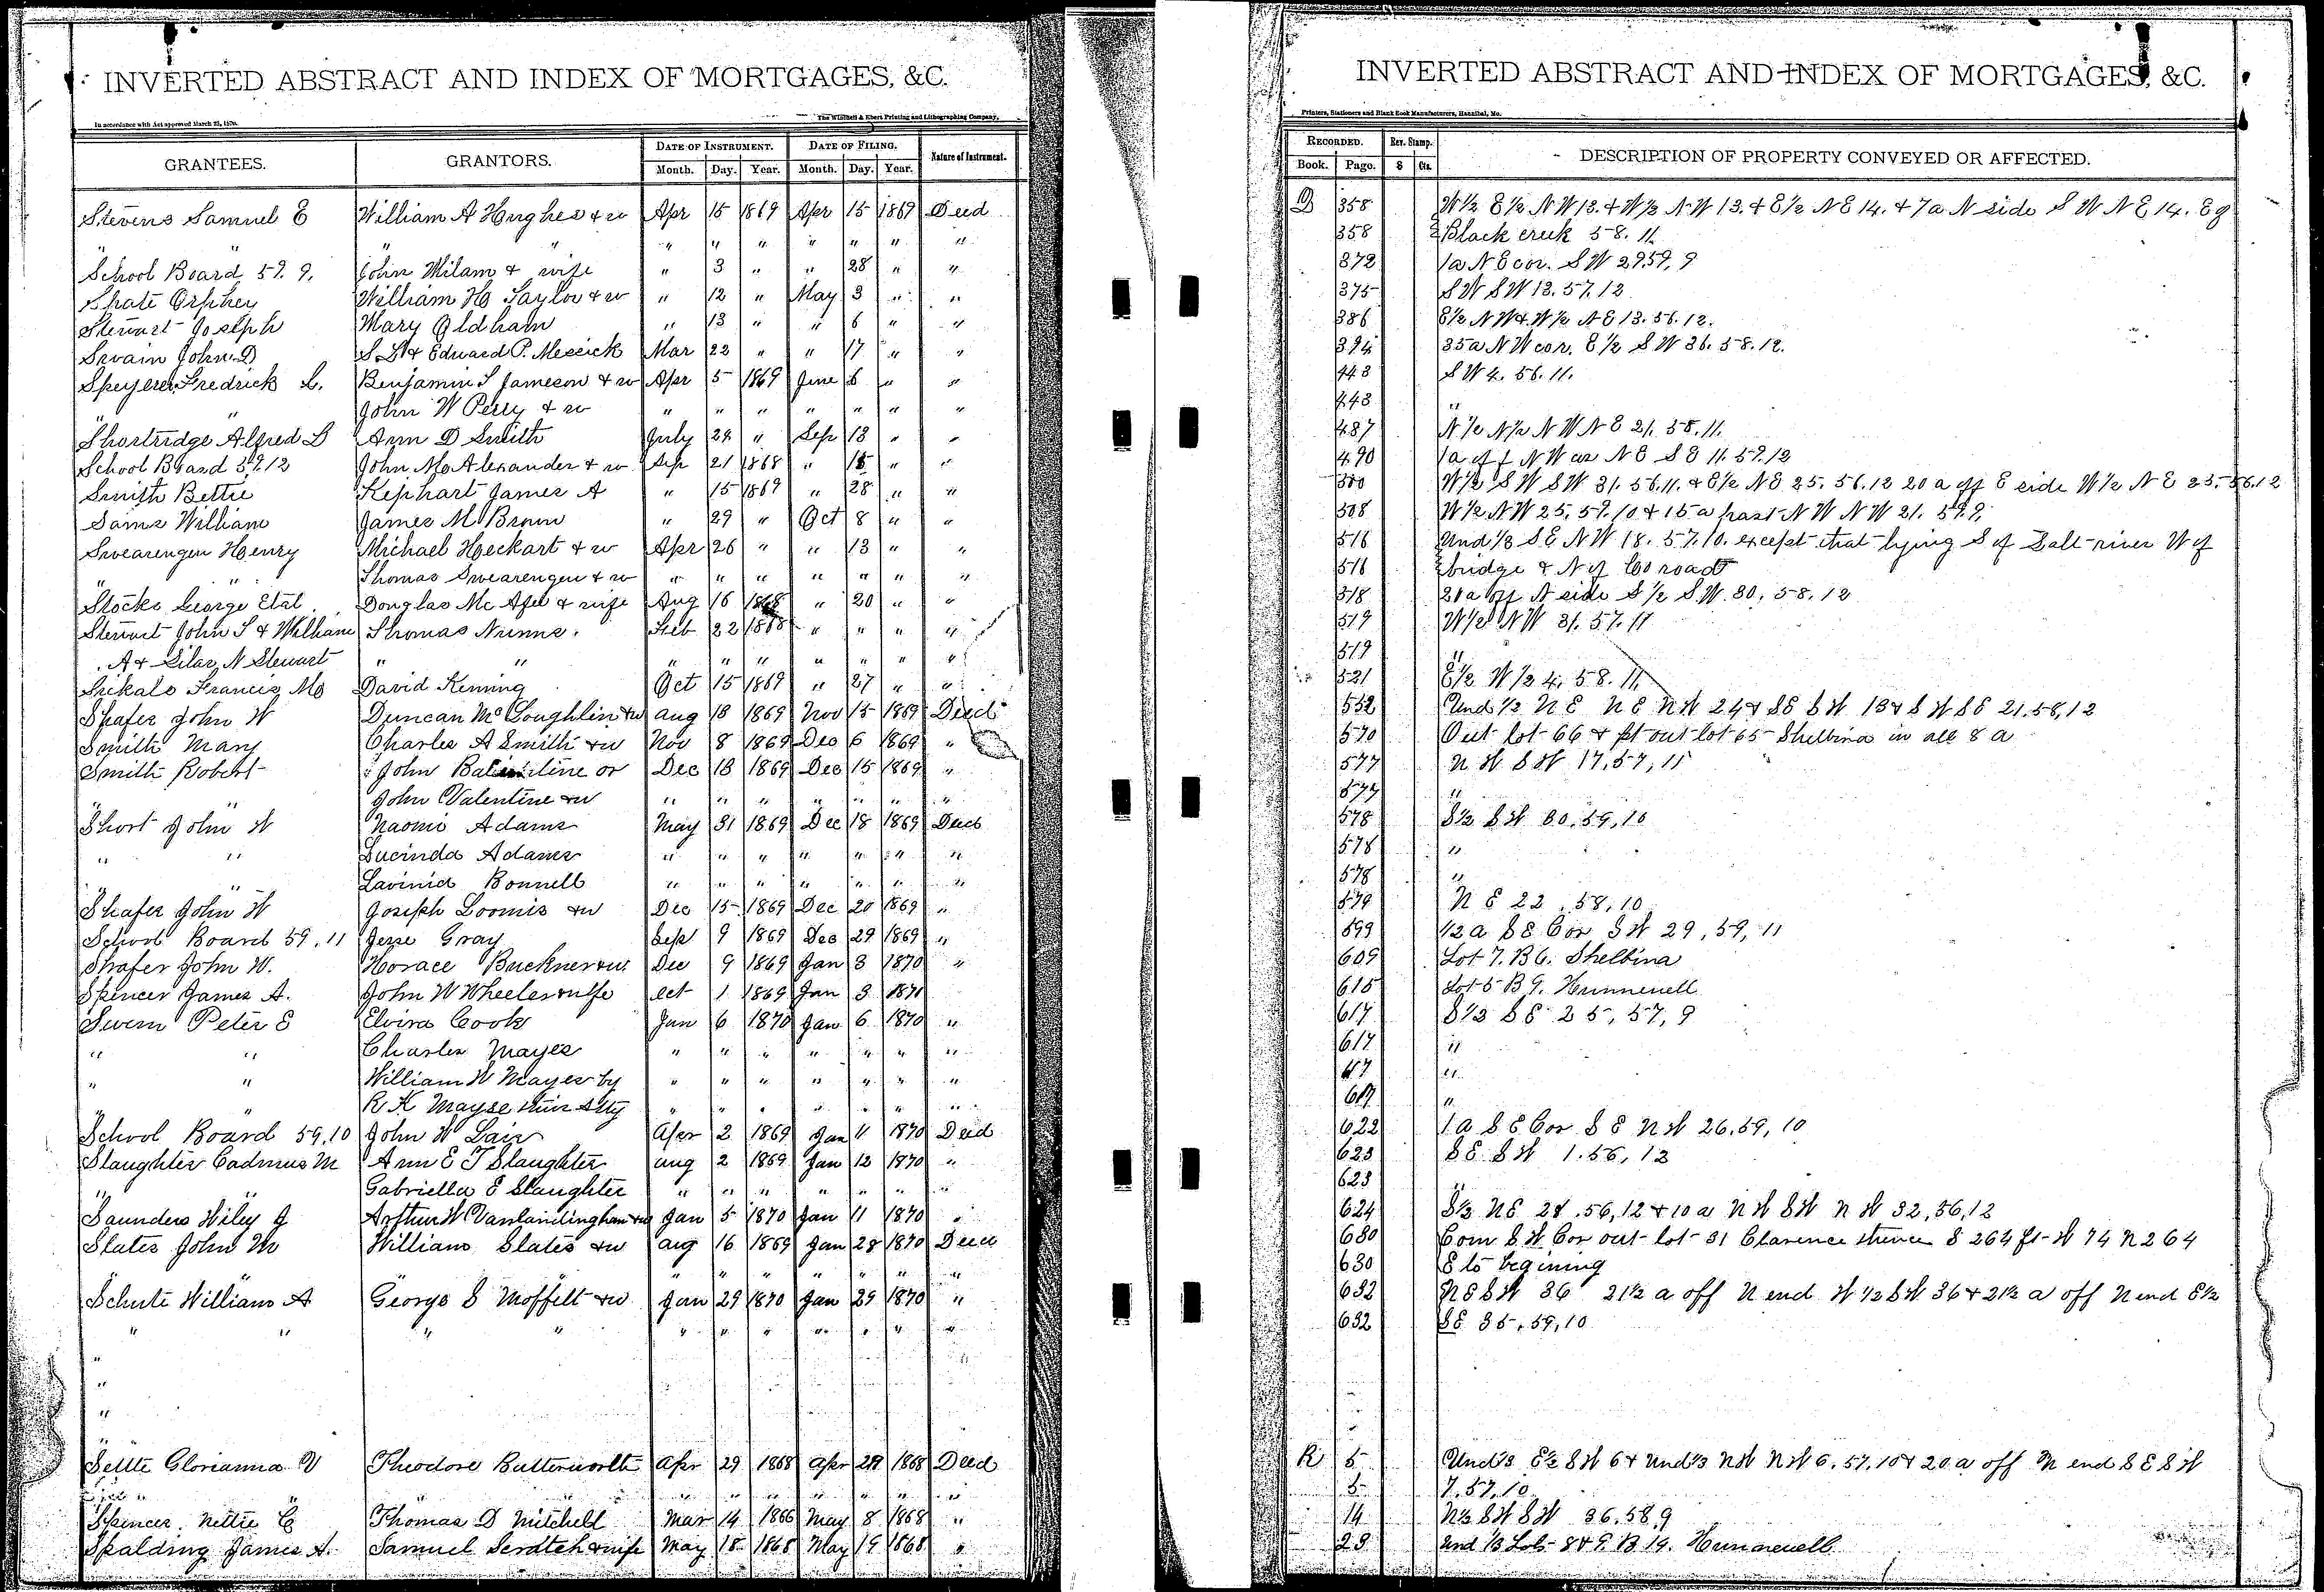 INVERTED ABSTRACT AND INDEX OF MORTGAGES, &C.
In accordance with Act approved March 25, 1870.
The Winchell & Ebert Printing and Lithographing Company,
GRANTEES. GRANTORS. DATE OF INSTRUMENT. DATE OF FILING. Nature of Instrument.
Month. Day. Year. Month. Day. Year.
Stevens Samuel E William A Hughes & w Apr 15 1869 Apr 15 1869 Deed
" " " " " " " " "
School Board 59. 9. John Milam & wife " 3 " " 28 " "
Shate Orphey William H Taylor & w " 12 " May 3 " "
Stewart Joseph Mary Oldham " 13 " " 6 " "
Swain John D S L & Edward P. Messick Mar 22 " " 17 " "
Speyerer Fredrick L. Benjamin S Jameson & w Apr 5 1869 June 6 " "
" " John W Perry & w " " " " " " "
Shortridge Alfred B Ann D Smith July 29 " Sep 13 " "
School Board 59.12 John M Alexander & w Sep 21 1868 " 15 " "
Smith Bettie Kephart James A " 15 1869 " 28 " "
Sams William James M Brown " 29 " Oct 8 " "
Swearengen Henry Michael Heckart & w Apr 26 " " 13 " "
" " Thomas Swearengen & w " " " " " " "
Stocks George Etal. Douglas Mc Afee & wife Aug 16 1868 " 20 " "
Stewart John S & William Thomas Nunns. Feb 22 1868 " " " "
A & Silas N Stewart " " " " " " " " "
Francis M David Oct 15 1869 " 27 " "
Shafer John W Duncan McLoughlin & w Aug 18 1869 Nov 15 1869 Deed
Smith Mary Charles A Smith & w Nov 8 1869 Dec 6 1869 "
Smith Robert John or Dec 13 1869 Dec 15 1869 "
" " John Valentine & w " " " " " " "
Short John W Naomi Adams May 31 1869 Dec 18 1869 Deed
" " Lucinda Adams " " " " " " "
" " Lavinia Bonnell " " " " " " "
Shafer John W Joseph Loomis & w Dec 15 1869 Dec 20 1869 "
School Board 59, 11 Jesse Gray Sep 9 1869 Dec 29 1869 "
Shafer John W. Horace Buckner & w Dec 9 1869 Jan 3 1870 "
Spencer James A. John W Wheeler & wife Oct 1 1869 Jan 3 1870
Swern Peter E Elvira Cook Jan 6 1870 Jan 6 1870 "
" " Charles Mayes " " " " " " "
" " William W Mayes by " " " " " " "
" R K Mayse their Atty " " " " " " "
School Board 59,10 John W Lair Apr 2 1869 Jan 11 1870 Deed
Slaughter Cadmus M Ann E T Slaughter Aug 2 1869 Jan 12 1870 "
" " Gabriella E Slaughter " " " " " " "
Saunders Wiley J Arthur W Vanlandingham & w Jan 5 1870 Jan 11 1870 "
Slates John M William Slates & w Aug 16 1869 Jan 28 1870 Deed
" " " " " " " " "
Schute William A George S Moffett & w Jan 29 1870 Jan 29 1870 "
" " " " " " " " " " "
"
"
"
"
Settle Glorianna V Theodore Butterworth Apr 29 1868 Apr 29 1868 Deed
" " " " " " " " "
Spencer Nettie C Thomas D Mitchell Mar 14 1866 May 8 1868 "
Spalding James A. Samuel & wife May 18 1868 May 19 1868 "
INVERTED ABSTRACT AND INDEX OF MORTGAGES, &C.
Printers, Stationers and Blank Book Manufacturers, Hannibal, Mo.
RECORDED. Rev. Stamp. DESCRIPTION OF PROPERTY CONVEYED OR AFFECTED.
Book. Page. $ Cts.
D 358 W½ E½ N W 13. & W½ N W 13. & E½ N E 14. & 7a N side S W N E 14. E of
358 Black creek 58. 11.
372 1a N E cor. S W 29.59, 9
375 S W S W 13. 57. 12
386 E½ N W & W½ N E 13. 56. 12.
394 35a N W cor. E½ S W 36. 58. 12.
443 S W 4. 56. 11.
443 "
487 N½ N½ N W N E 21. 58. 11.
490 1a off N W cor N E S E 11. 59. 12
500 W½ S W S W 31. 56. 11. & E½ N E 25. 56. 12 20 a off E side W½ N E 25. 56. 12
508 W½ N W 25. 59. 10 & 15 a part N W N W 21. 59. 9.
516 Und ⅓ S E N W 18. 57. 10. except that lying S of Salt river W of
516 bridge & N of Co road
518 20 a off N side S½ S.W. 30, 58, 12
519 W½ N W 31. 57. 11
519 "
521 E½ W½ 4. 58. 11
552 Und ½ N E N E N W 24 & S E S W 13 & S W S E 21. 58, 12
570 Out lot 66 & pt out lot 65 Shelbina in all 8 a
577 N W S W 17. 57, 11
577 "
578 S½ S W 30. 59, 10
578 "
578 "
579 N E 22. 58, 10
599 ½ a S E Cor S W 29, 59, 11
609 Lot 7. B 6. Shelbina
615 Lot 5 B 9. Hunnewell
617 S½ S E 25, 57, 9
617 "
617 "
617 "
622 1 a S E Cor S E N W 26, 59, 10
623 S E S W 1. 56, 12
623 "
624 S½ N E 28. 56, 12 & 10 a N W S W N W 32, 56, 12
630 Com S W Cor out lot 31 Clarence thence S 264 ft W 74 N 264
630 E to begining
632 N E S W 36 21½ a off N end W½ S W 36 & 21½ a off N end E½
632 S E 35, 59, 10
R 5 Und ⅓ E½ S W 6 & Und ⅓ N W N W 6. 57. 10 & 20 a off N end S E S W
5 7. 57. 10
14 N½ S W S W 36. 58. 9
23 Und ⅓ Lots 8 & 9 B. 19. Hunnewell